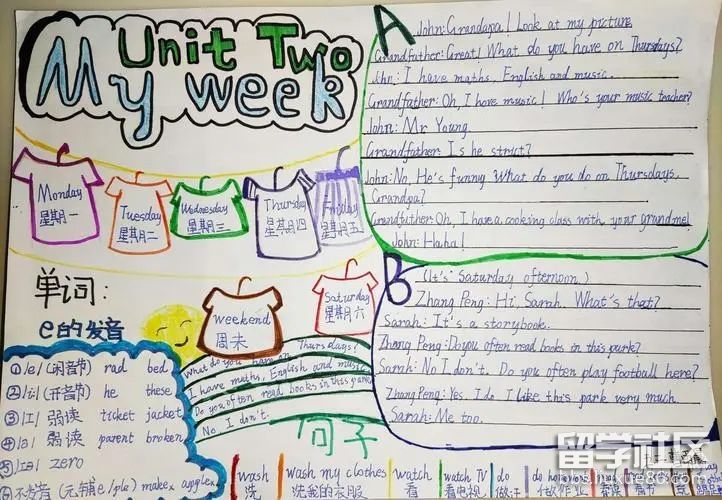 Unit Two
My week
A
John: Grandapa! Look at my picture
Grandfather: Great! What do you have on Thursdays?
Jhn: I have maths, English and music.
Grandfather: Oh, I have music! Who's your music teacher?
John: Mr Young.
Grandfather: Is he strict?
John: No, He's funny What do you do on Thursdays,
Grandpa?
Grandfather: Oh, I have a cooking class with your grandma!
John: Ha.ha!
Monday
星期一
Tuesday
星期二
Wednesday
星期三
Thursday
星期四
Friday
星期五
weekend
周末
Saturday
星期六
B
(It's Saturday afternoon.)
Zhang Peng: Hi, Sarah. What's that?
Sarah: It's a storybook.
Zhang Peng: Do you often read books in this park?
Sarah: No I don't. Do you often play football here?
Zhang Peng: Yes. I do I like this park very much.
Sarah: Me too.
单词:
e的发音
①/e/ (闭音节) red bed
②/i:/ (开音节) he these
③/I/ 弱读 ticket jacket
④/ə/ 弱读 parent broken
⑤ zero
What do you have on Thursdays?
I have maths, English and music
Do you often read books in this park
No I don't.
句子
wash
洗
wash my clothes
洗我的衣服
watch
看
watch TV
看电视
do
留学社区